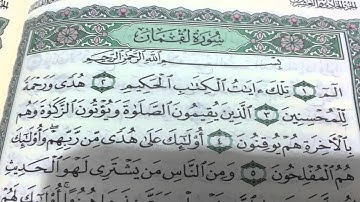 سُورَةُ لُقْمَان
بِسْمِ اللَّهِ الرَّحْمَٰنِ الرَّحِيمِ
الٓمٓ ١ تِلْكَ ءَايَٰتُ الْكِتَٰبِ الْحَكِيمِ ٢ هُدًى وَرَحْمَةً
لِّلْمُحْسِنِينَ ٣ الَّذِينَ يُقِيمُونَ الصَّلَوٰةَ وَيُؤْتُونَ الزَّكَوٰةَ وَهُم
بِالْءَاخِرَةِ هُمْ يُوقِنُونَ ٤ أُوْلَٰٓئِكَ عَلَىٰ هُدًى مِّن رَّبِّهِمْ وَأُوْلَٰٓئِكَ
هُمُ الْمُفْلِحُونَ ٥ وَمِنَ النَّاسِ مَن يَشْتَرِى لَهْوَ الْحَدِيثِ